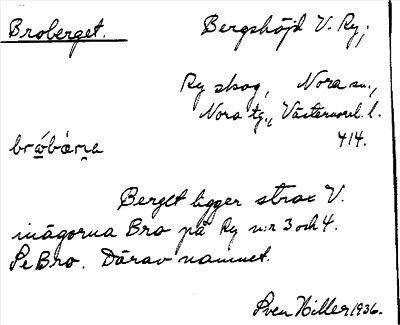 Broberget. Bergshöjd V. Ry,
Ry skog, Nora sn.,
Nora tg., Västernorrl. l.
414.
brω̣̄bàrɲa
Berget ligger strax V.
inägorna Bro på Ry n:r 3 och 4.
Se Bro. Därav namnet.
Sven Hiller 1936.